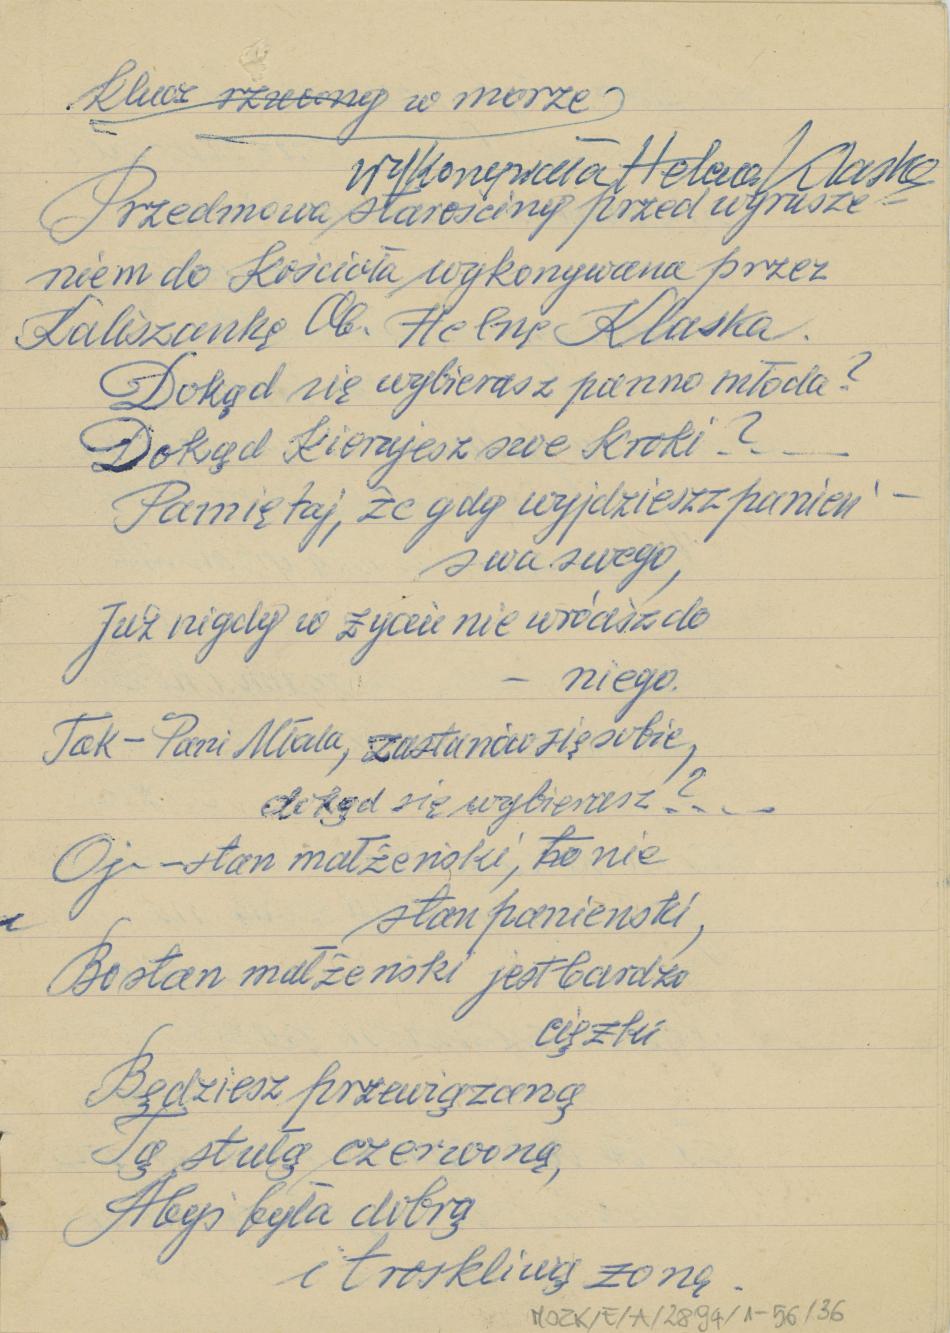 Klucz rzucony w morze
Wykonywała Helena Klaska
Przedmowa starościny przed wyrusze-
niem do Kościoła wykonywana przez
Kaliszankę Ob. Helnę Klaska.
Dokąd się wybierasz panno młoda?
Dokąd kierujesz swe kroki?
Pamiętaj, że gdy wyjdziesz z panień-
swa swego,
Już nigdy w życiu nie wrócisz do
- niego.
Tak - Pani Młoda, zastanów się sobie,
dokąd się wybierasz?
Oj - stan małżeński, to nie
stan panienski,
Bo stan małżeński jest bardzo
ciężki
Będziesz przewiązaną
Tą stułą czerwoną,
Abyś była dobrą
i troskliwą zoną.
MOZK/E/A/2894/1-56/36